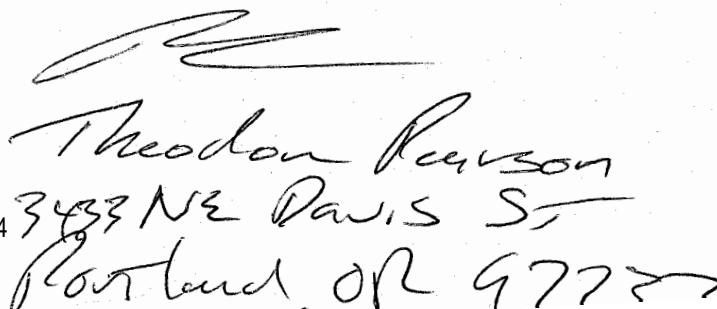 Theodore Pearson
4 3433 NE Davis St
Portland, OR 97232